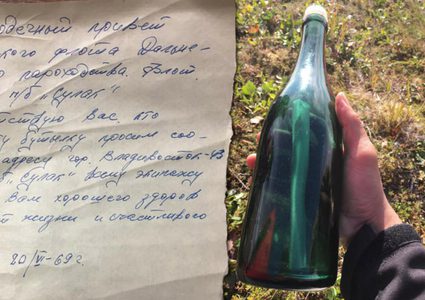 дечный привет
ского флота Дальне-
о пароходства. Флот.
п/б „Сулак“
ствую Вас, кто
у бутылку просим соо-
адресу гор. Владивосток-43
б „Сулак“ всему экипажу
Вам хорошего здоров
т жизни и счастливого
20/VI-69 г.